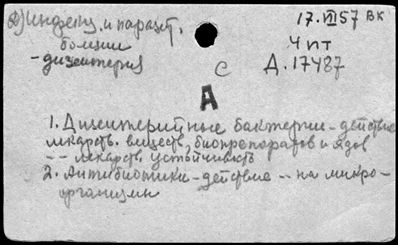 2) Инфекц. и паразит.
болезни
- дизентерия
17.VII 57 ВК
4 пт
Д.17487
С
А
1. Дизентерийные бактерии - действие
лекарств. веществ, биопрепаратов и ядов
-- лекарств. устойчивость
2. Антибиотики - действие -- на микро-
организмы